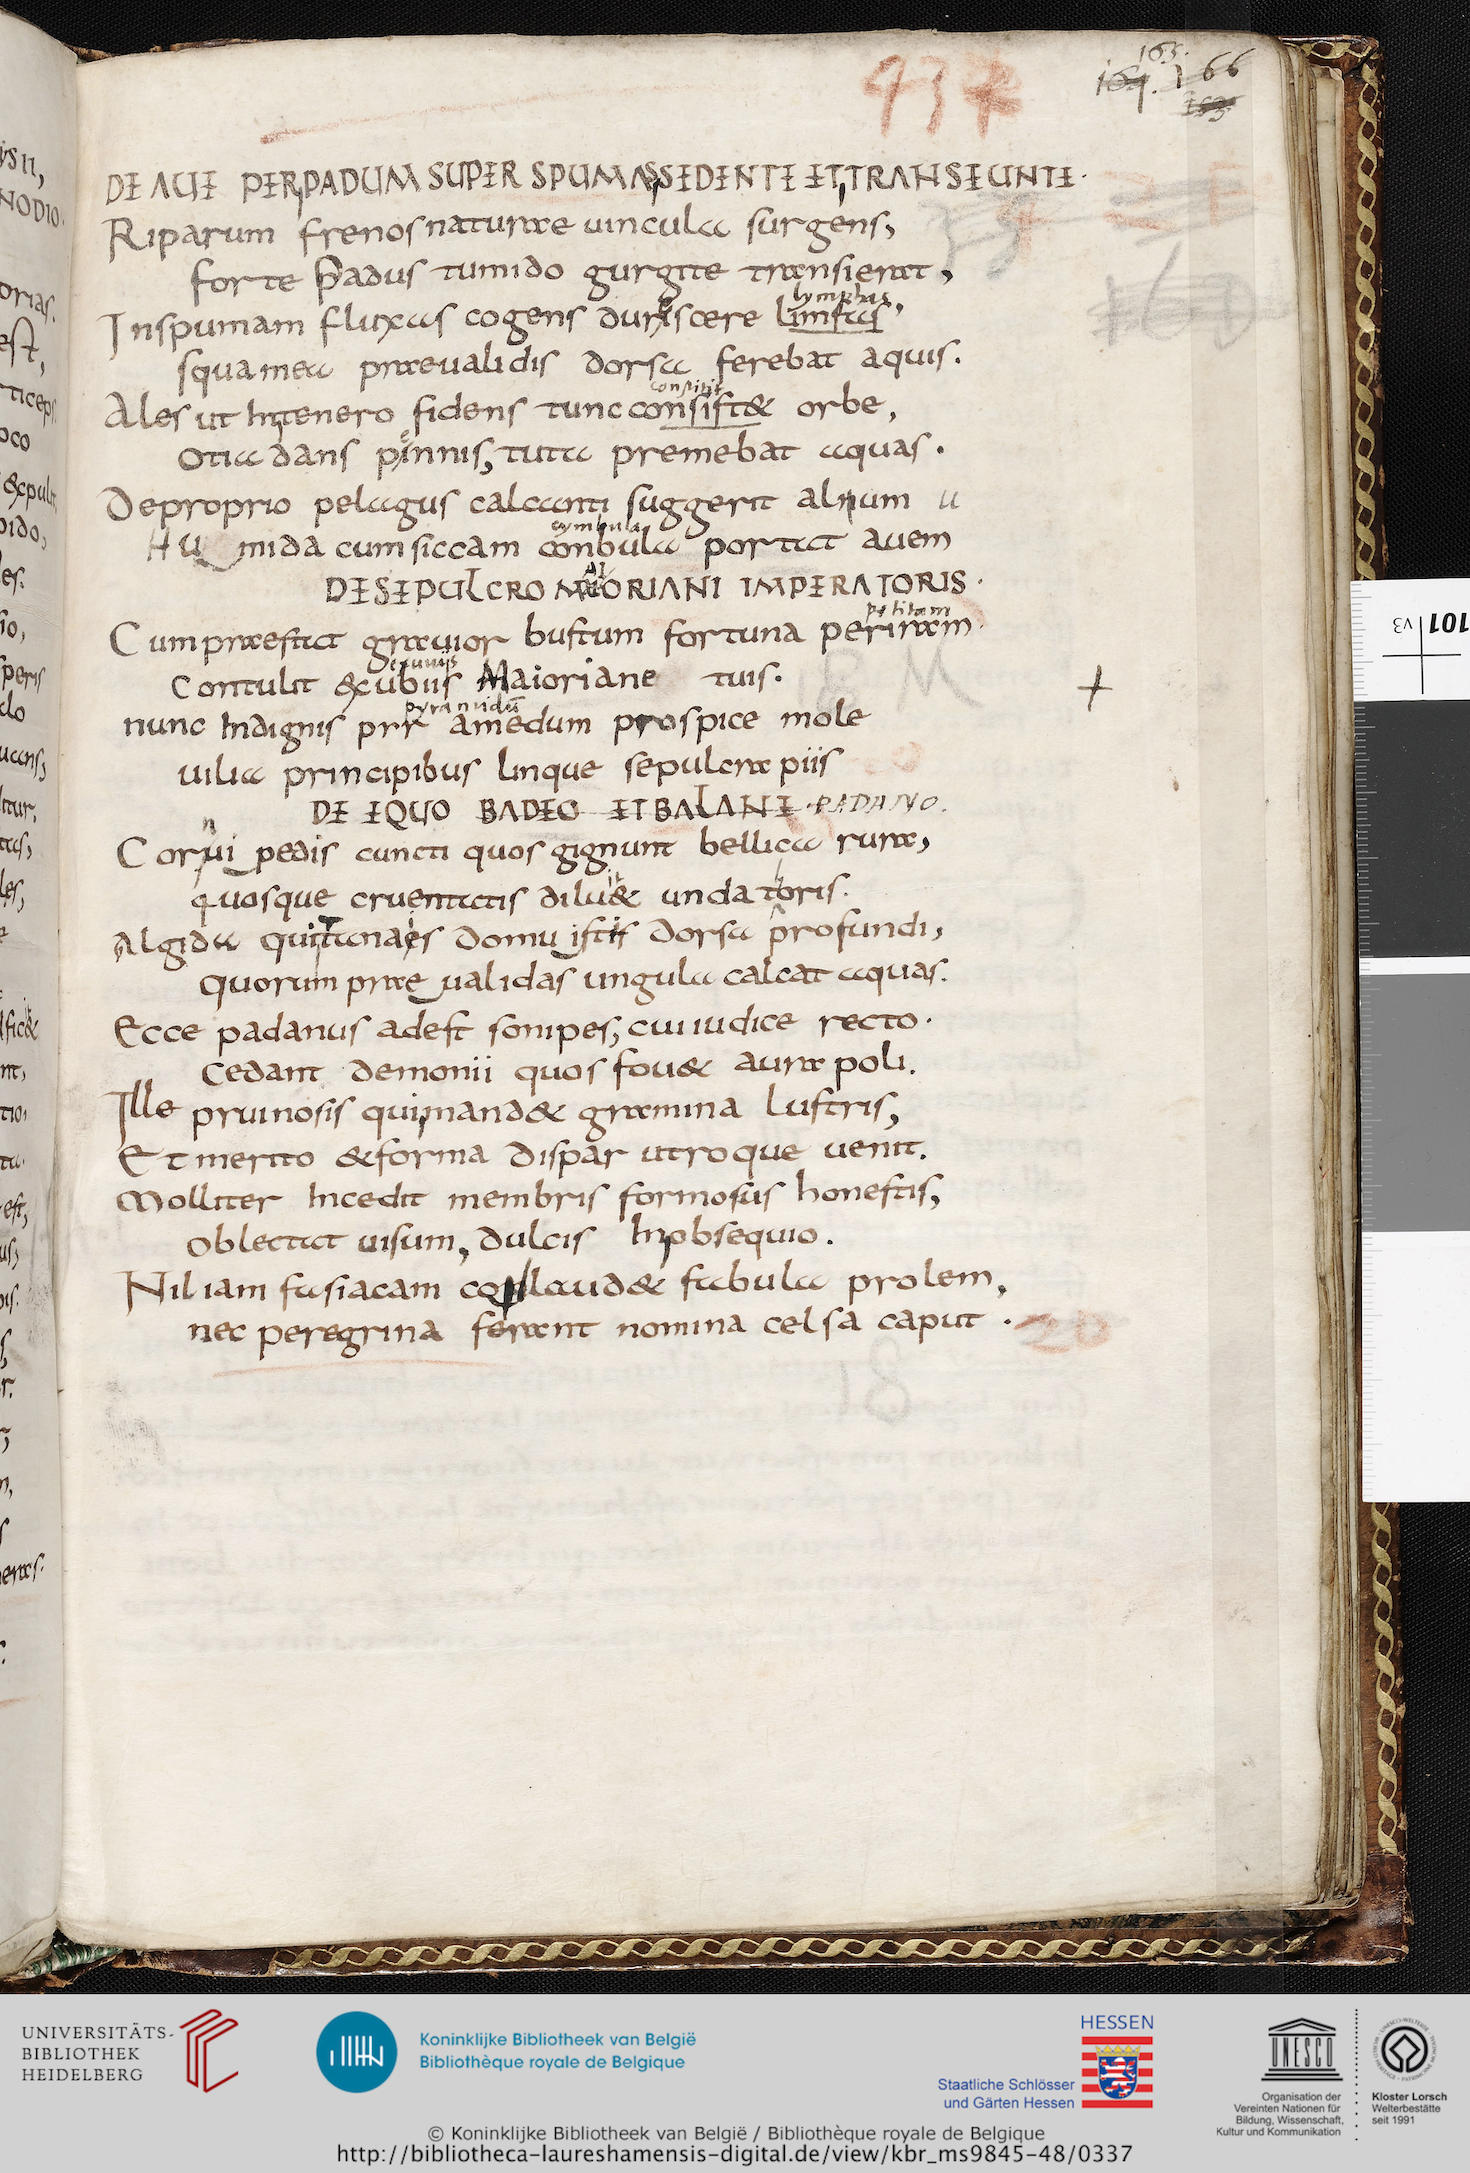 937
165.
164. 166
153
DE AUE PER PADUM SUPER SPUMAS SEDENTE ET TRANSEUNTE.
Riparum frenos naturae uincula surgens,
forte Padus tumido gurgite transierat,
lymphas
Inspumam fluxas cogens duriscere limfas,
squamea praeualidis dorsa ferebat aquis.
consistit
Ales ut intenero fidens tunc consist& orbe,
Otia dans pinnis, tuta premebat aquas.
Deproprio pelagus calcanti suggerit alnum
cymbula
Humida cum siccam combula portat auem
DE SEPULCRO MAIORIANI IMPERATORIS.
petitam
Cum praestat grauior bustum fortuna periram.
exuuiis
Contulit &cubiis Maioriane tuis.
pyramidum
nunc indignis prr amedum prospice mole
uilia principibus linque sepulcra piis
DE EQUO BADEO ET BALANE PADANO.
Cornipedis cuncti quos gignunt bellica rura,
quosque cruentatis dilu& unda toris.
Algida qui tanaes domuistis dorsa profundi,
Quorum prae ualidas ungula calcat aquas.
Ecce padanus adest sonipes, cui iudice recto.
Cedant demonii quos fou& aura poli.
Ille pruinosis qui mand& gramina lustris,
Et merito &forma dispar utroque uenit.
Molliter incedit membris formosus honestis,
Oblectat uisum, dulcis inobsequio.
Nil iam fasiacam conlaud& fabula prolem,
nec peregrina ferant nomina celsa caput.
20
18
101 v3
UNIVERSITÄTS-
BIBLIOTHEK
HEIDELBERG
Koninklijke Bibliotheek van België
Bibliothèque royale de Belgique
HESSEN
Staatliche Schlösser
und Gärten Hessen
UNESCO
Organisation der
Vereinten Nationen für
Bildung, Wissenschaft,
Kultur und Kommunikation
Kloster Lorsch
Welterbestätte
seit 1991
© Koninklijke Bibliotheek van België / Bibliothèque royale de Belgique
http://bibliotheca-laureshamensis-digital.de/view/kbr_ms9845-48/0337